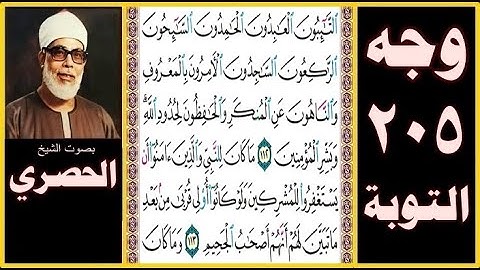 وجه
٢٠٥
التوبة
ٱلتَّٰٓئِبُونَ ٱلْعَٰبِدُونَ ٱلْحَٰمِدُونَ ٱلسَّٰٓئِحُونَ
ٱلرَّٰكِعُونَ ٱلسَّٰجِدُونَ ٱلْءَامِرُونَ بِٱلْمَعْرُوفِ
وَٱلنَّاهُونَ عَنِ ٱلْمُنكَرِ وَٱلْحَٰفِظُونَ لِحُدُودِ ٱللَّهِۗ
وَبَشِّرِ ٱلْمُؤْمِنِينَ ١١٢ مَا كَانَ لِلنَّبِيِّ وَٱلَّذِينَ ءَامَنُوٓا۟ أَن
يَسْتَغْفِرُوا۟ لِلْمُشْرِكِينَ وَلَوْ كَانُوٓا۟ أُو۟لِى قُرْبَىٰ مِنۢ بَعْدِ
مَا تَبَيَّنَ لَهُمْ أَنَّهُمْ أَصْحَٰبُ ٱلْجَحِيمِ ١١٣ وَمَا كَانَ
بصوت الشيخ
الحصري